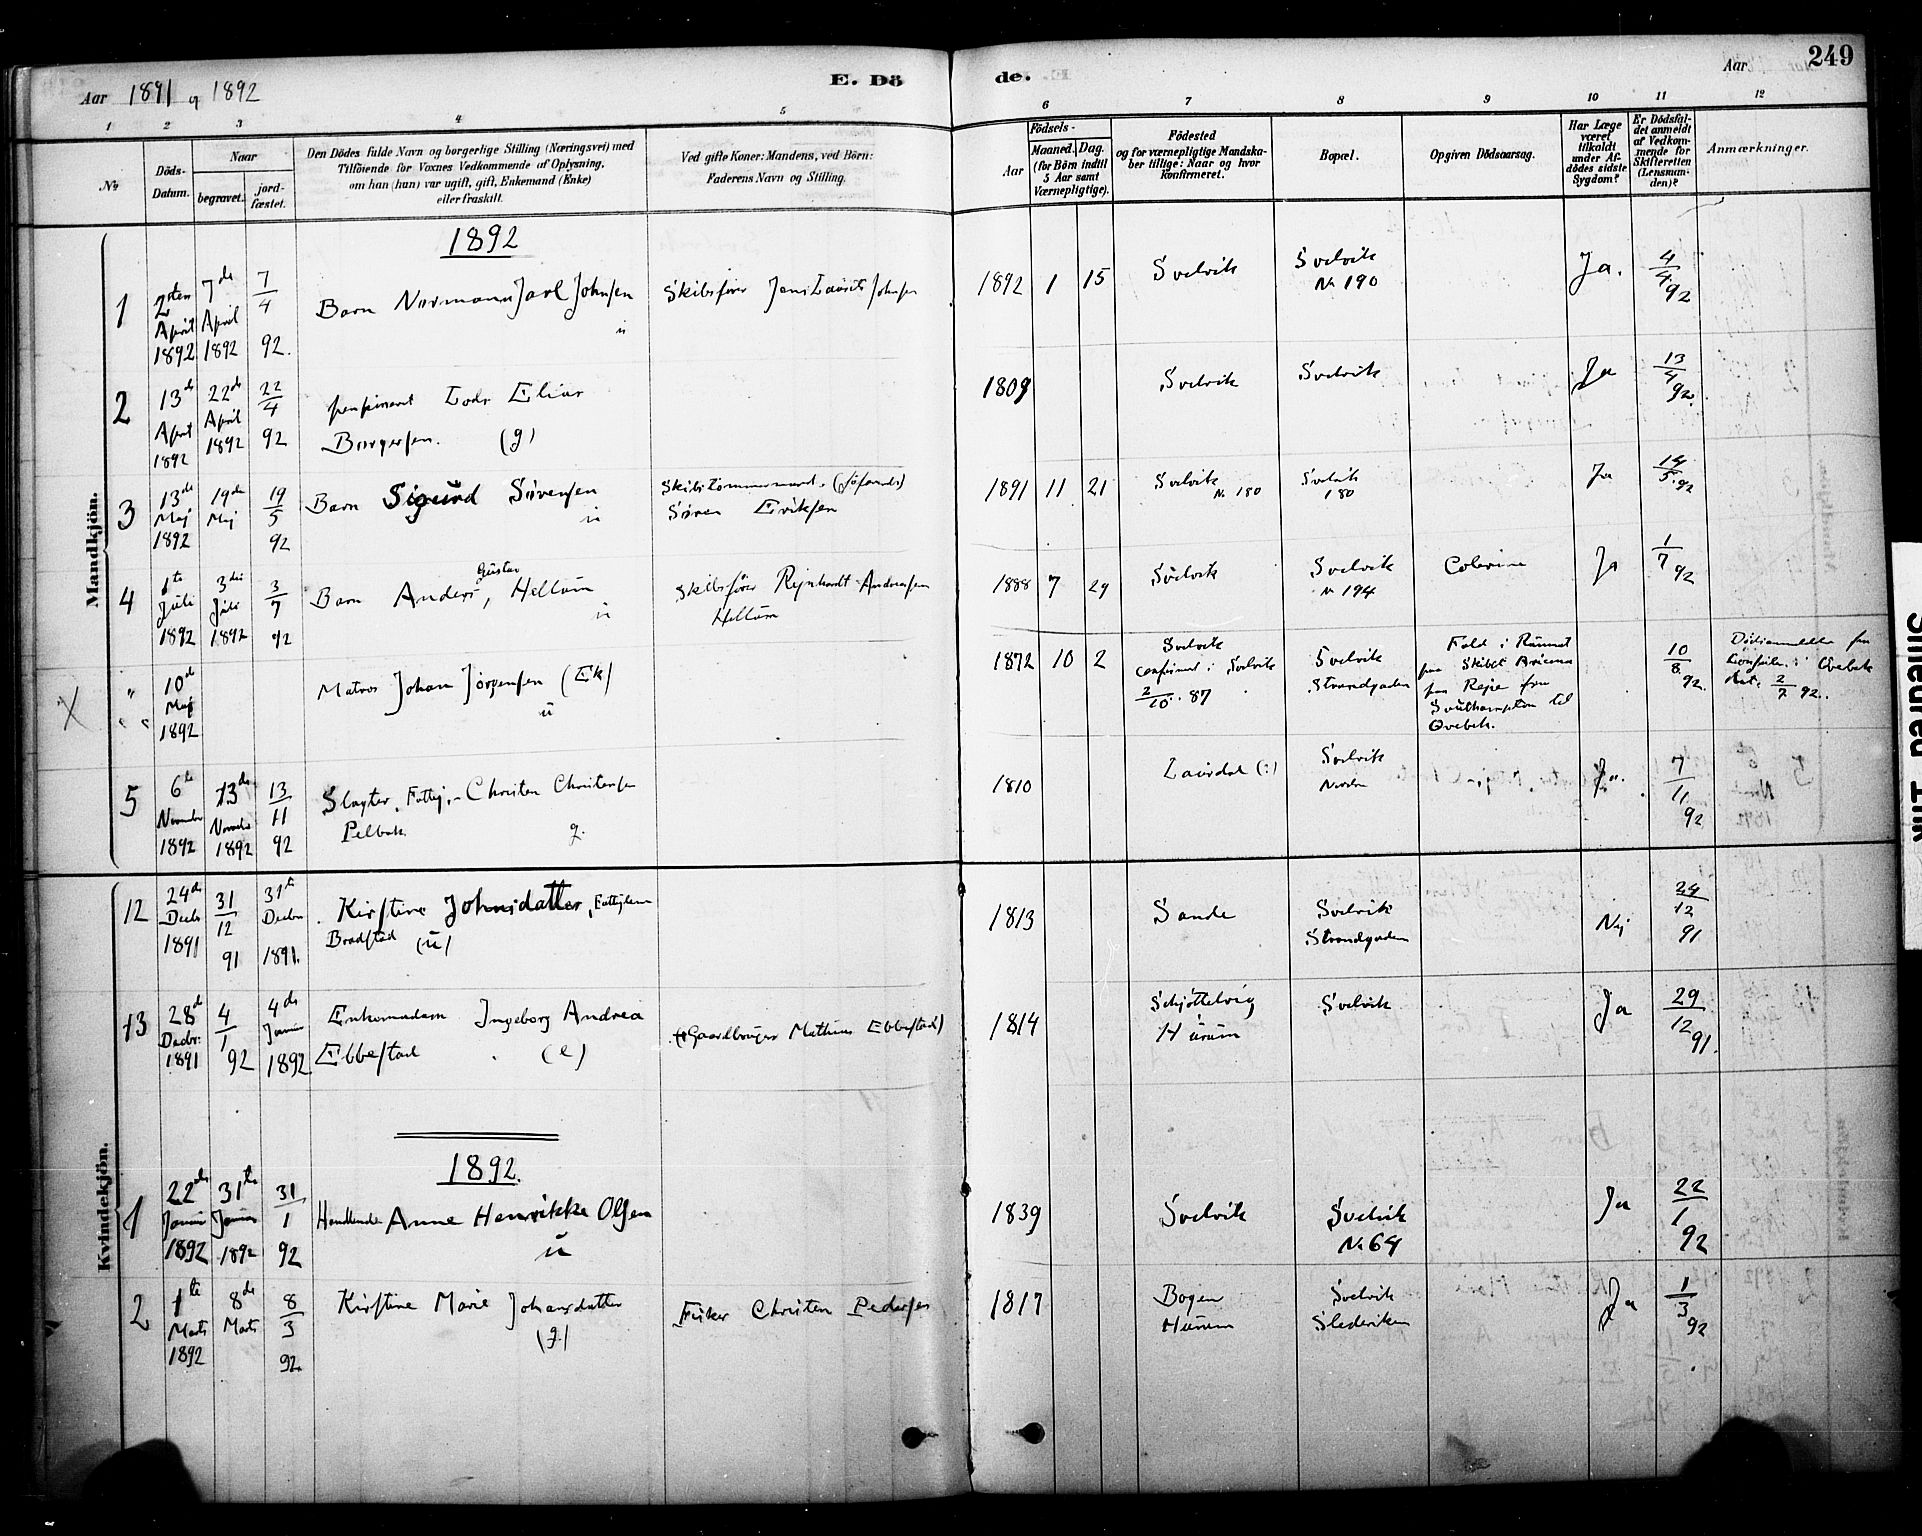 Aar 1891 og 1892
E. Dö
de.
Aar
249
1 2 3 4 5 6 7 8 9 10 11 12
No
Döds-
Datum.
Naar
begravet.
jord-
fæstet.
Den Dödes fulde Navn og borgerlige Stilling (Næringsvei) med
Tilföiende for Voxnes Vedkommende af Oplysning,
om han (hun) var ugift, gift, Enkemand (Enke)
eller fraskilt.
Ved gifte Koner: Mandens, ved Börn:
Faderens Navn og Stilling.
Födsels-
Aar
Maaned.
Dag.
(for Börn indtil
5 Aar samt
Værnepligtige).
Födested
og for værnepligtige Mandska-
ber tillige: Naar og hvor
konfirmeret.
Bopæl.
Opgiven Dödsaarsag.
Har Læge
været
tilkaldt
under Af-
dödes sidste
Sygdom?
Er Dödsfal-
det anmeldt
af Vedkom-
mende for
Skifteretten
(Lensman-
den)?
Anmærkninger.
Mandkjön.
1892
1
2den April 1892
7de April 1892
7/4 92.
Barn Normann Jarl Johnsen
u
Skibsfører Jens Laurits Johnsen
1892 1 15
Svelvik
Svelvik
No 190
Ja.
4/4 92
2
13de April 1892
22de April 1892
22/4 92
pensioneret Lods Elias
Borgersen. (g)
1809
Svelvik
Svelvik
Ja
13/4 92.
3
13de Maj 1892
19de Maj
19/5 92
Barn Sigurd Sörensen
u
Skibstømmermand
Sören Eriksen
1891 11 21
Svelvik
No 180
Svelvik
180
Ja
14/5 92
4
1ste Juli 1892
3die Juli 1892
3/7 92
Barn Anders, Gustav Hellum
u
Skibsfører Rejnhardt Andreasen
Hellum
1888 7 29
Svelvik
Svelvik
No 194
Colerine
Ja
1/7 92
X
" "
10de Maj 1892
Matros Johan Jörgensen (Ek)
u
1872 10 2
Svelvik
confirmert i Svelvik
2/10. 87
Svelvik
Strandgaden
Fald i Rummet
paa Skibet
paa Rejse fra
Southampton til
Qvebek.
10/8 92.
Dödsanmeldelse fra
i Qvebek
dat. 2/7 92.
5
6te November 1892
13de November 1892
13/11 92
Christen Christensen
g.
1810
Laurdal (:)
Svelvik
Ja.
7/11 92
Kvindekjön.
12
24de Decbr 1891
31/12 91
31te Decbr 1891.
Kirstine Johnsdatter, Fattiglem
Bradstad (u)
1813
Sande
Svelvik
Strandgaden
Nej
24/12 91
13
28de Decbr: 1891
4/1 92
4de Januar 1892
Enkemadam Ingeborg Andrea
Ebbestad (e)
(Gaardbruger Mathias Ebbestad)
1814
Schjöttelvig
Hurum
Svelvik
Ja
29/12 91.
1892.
1
22de Januar 1892
31te Januar 1892
31/1 92
Handlende Anne Henrikke Olsen
u
1839
Svelvik
Svelvik
No 64
Ja
22/1 92
2
1ste Marts 1892
8de Marts
8/3 92.
Kirstine Marie Johansdatter
(g)
Fisker Christen Pedersen
1817
Bogen
Hurum
Svelvik
Ja
1/3 92